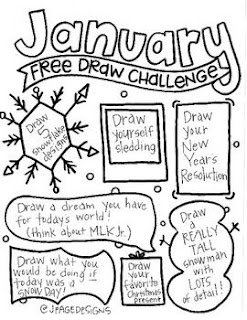 January
FREE DRAW CHALLENGE
Draw
5
snowflake
designs
Draw
yourself
sledding
Draw
your
New
Years
Resolution
Draw a dream you have
for today's world!
(think about MLK Jr.)
Draw
a
REALLY
TALL
snowman
with
LOTS
of detail!!
Draw what you
would be doing if
today was a
SNOW DAY!
Draw
your
favorite
Christmas
present
@JPAGEDESIGNS